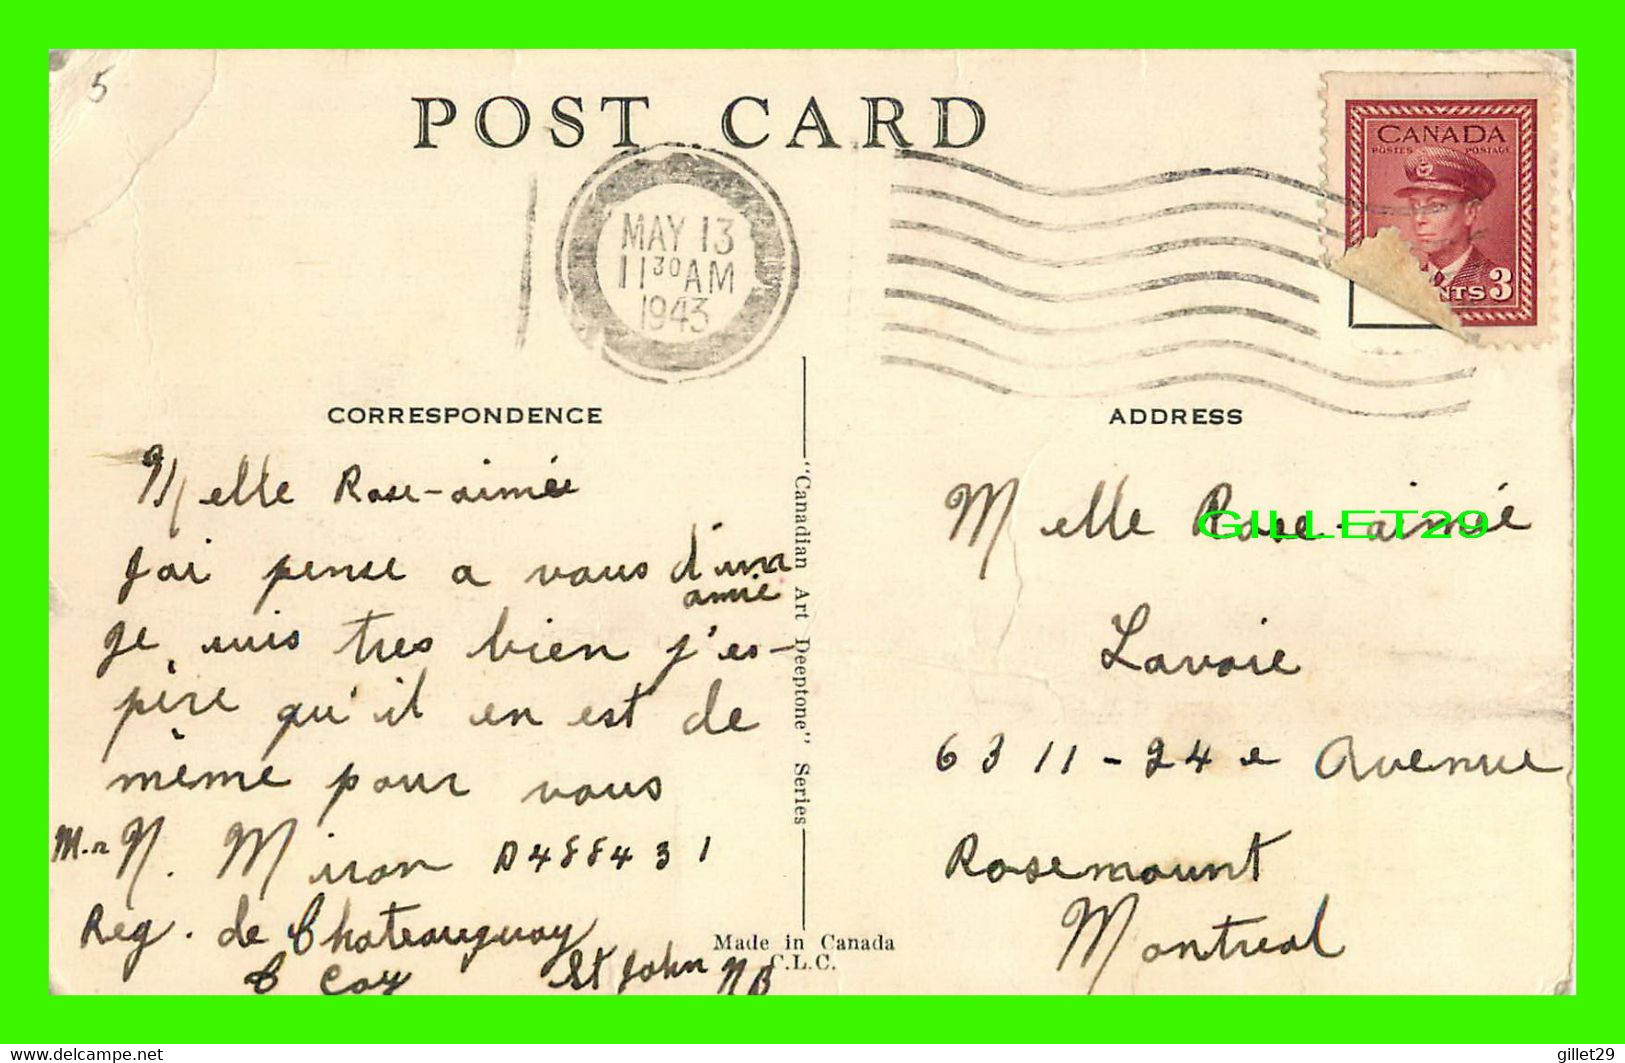 5
POST CARD
CANADA
POSTES POSTAGE
NTS 3
MAY 13
11 30 AM
1943
CORRESPONDENCE
Melle Rose-aimée
J'ai pense a vous d'un
amie
Je suis tres bien j'es-
père qu'il en est de
même pour vous
Mr N. Miron D488431
Reg. de Chateauguay
C Coy St John NB
"Canadian Art Deeptone" Series
Made in Canada
C.L.C.
ADDRESS
Melle Rose-aimée
GILLET29
Lavoie
6311-24e Avenue
Rosemount
Montreal
delcampe.net
gillet29